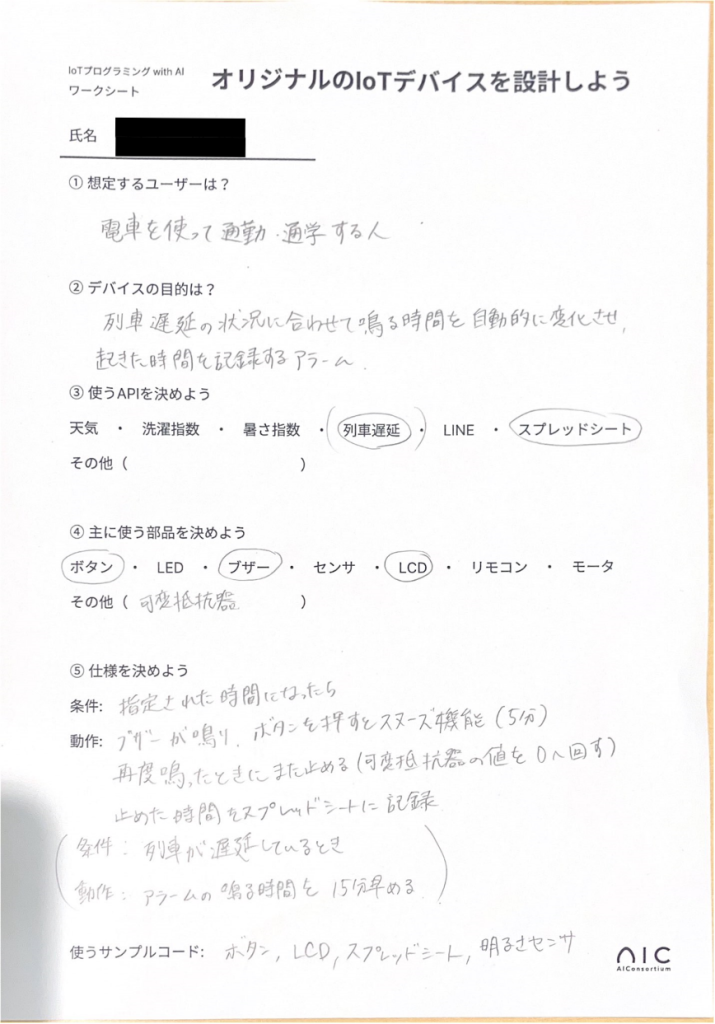 IoTプログラミング with AI
ワークシート
オリジナルのIoTデバイスを設計しよう
氏名
① 想定するユーザーは？
電車を使って通勤・通学する人
② デバイスの目的は？
列車遅延の状況に合わせて鳴る時間を自動的に変化させ,
起きた時間を記録するアラーム.
③ 使うAPIを決めよう
天気 ・ 洗濯指数 ・ 暑さ指数 ・ (列車遅延) ・ LINE ・ スプレッドシート
その他（ ）
④ 主に使う部品を決めよう
ボタン ・ LED ・ ブザー ・ センサ ・ LCD ・ リモコン ・ モータ
その他（ 可変抵抗器 ）
⑤ 仕様を決めよう
条件: 指定された時間になったら
動作: ブザーが鳴り, ボタンを押すとスヌーズ機能 (5分)
再度鳴ったときにまた止める (可変抵抗器の値を0へ回す)
止めた時間をスプレッドシートに記録
(条件: 列車が遅延しているとき
動作: アラームの鳴る時間を 15分早める.)
使うサンプルコード: ボタン, LCD, スプレッドシート, 明るさセンサ
AIC
AIConsortium